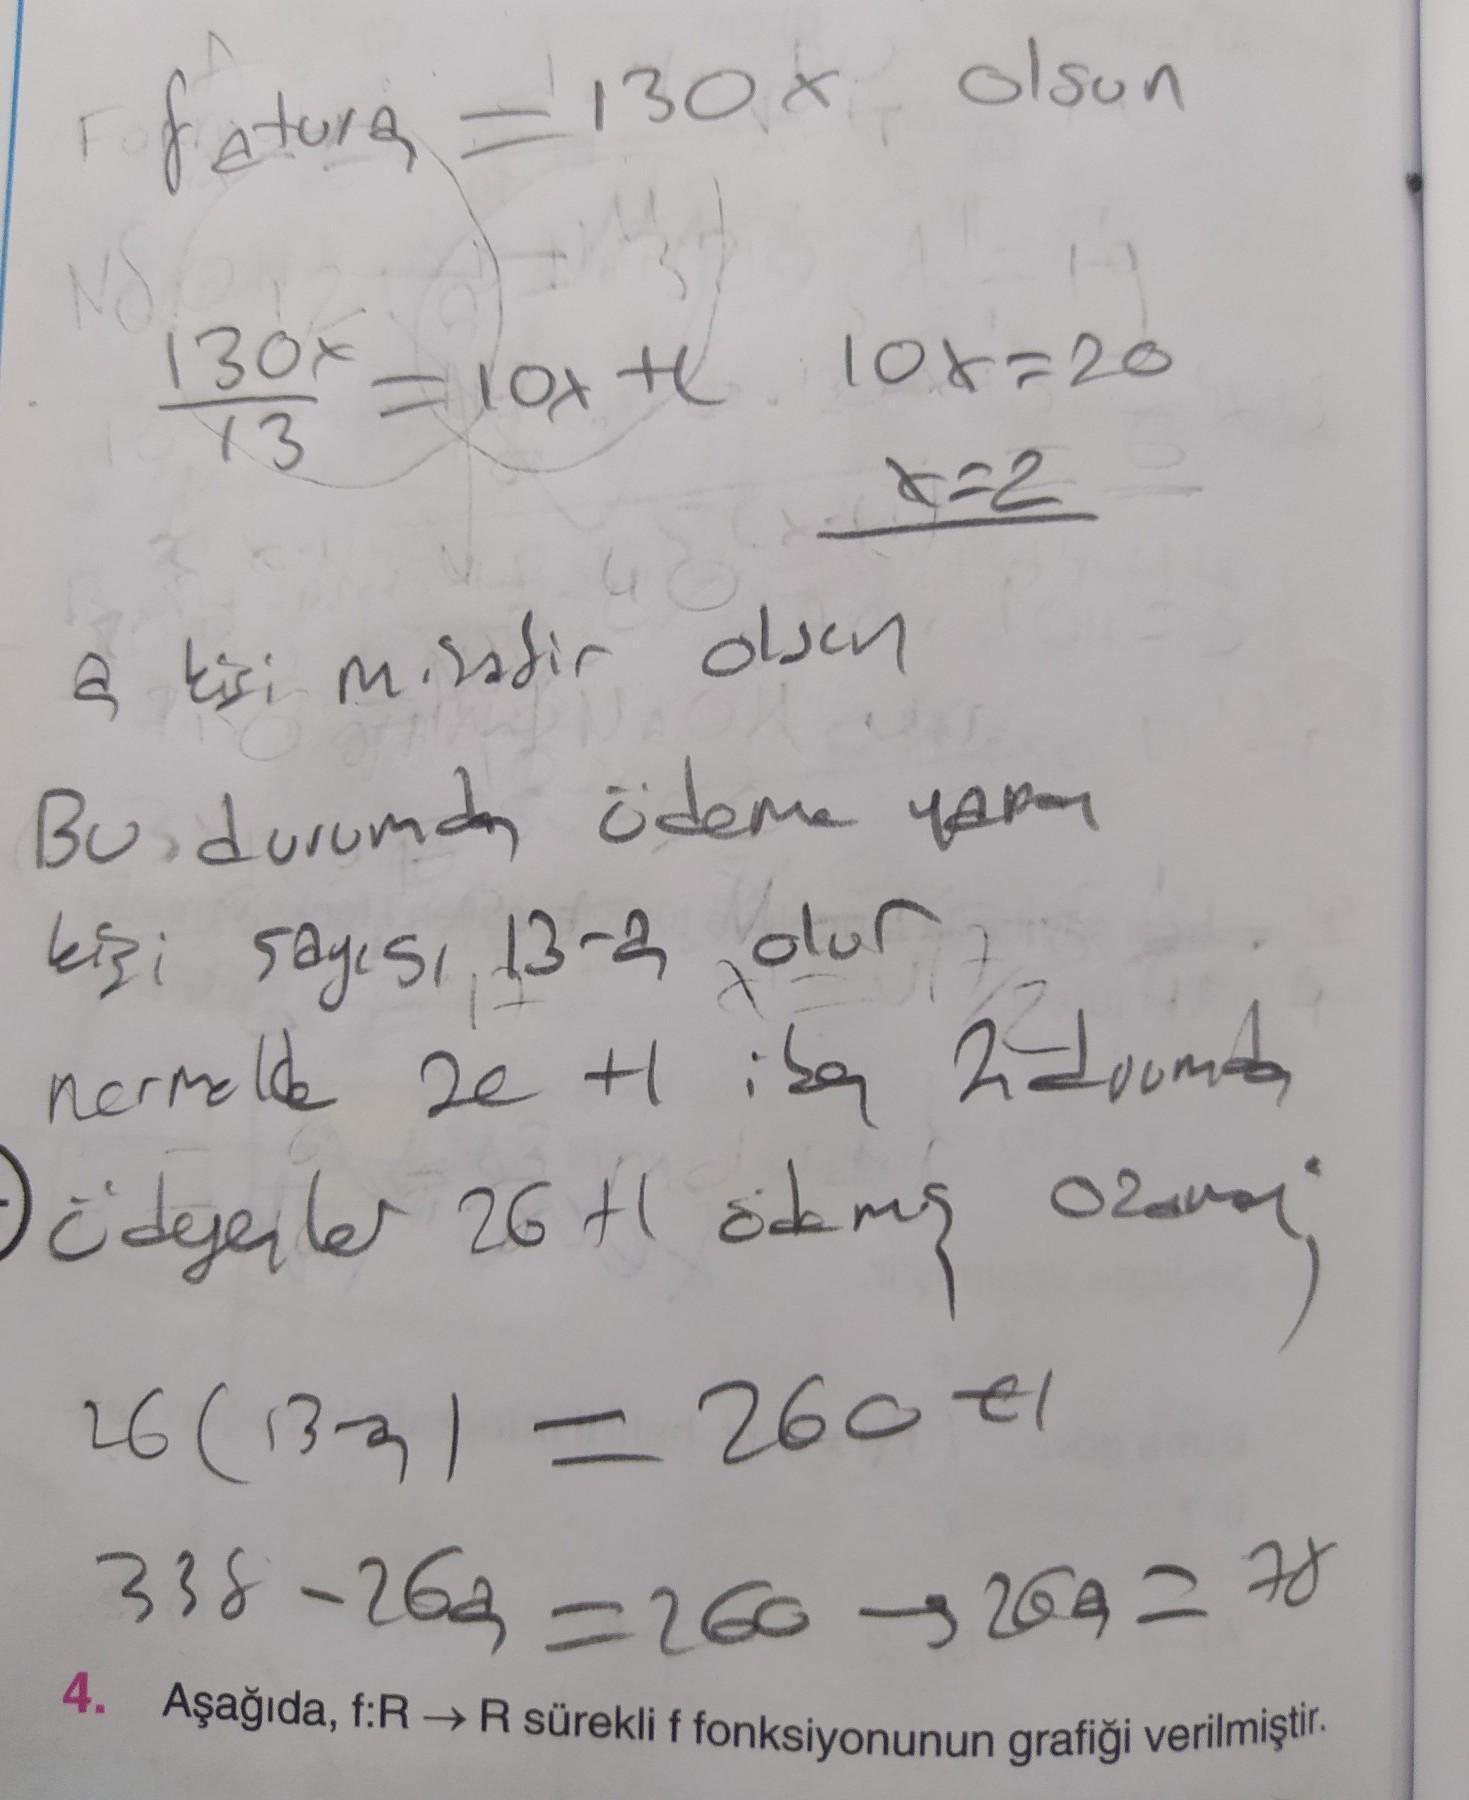 fatura = 130x olsun
130x/13 = 10x tl 10x=20
x=2
a kişi misafir olsun
Bu durumda ödeme yapan
kişi sayısı 13-a olur
normalde 20 tl iken 2. durumda
ödeyenler 26 tl ödemiş o zaman;
26(13-a) = 260 tl
338 - 26a = 260 → 26a = 78
4. Aşağıda, f:R → R sürekli f fonksiyonunun grafiği verilmiştir.